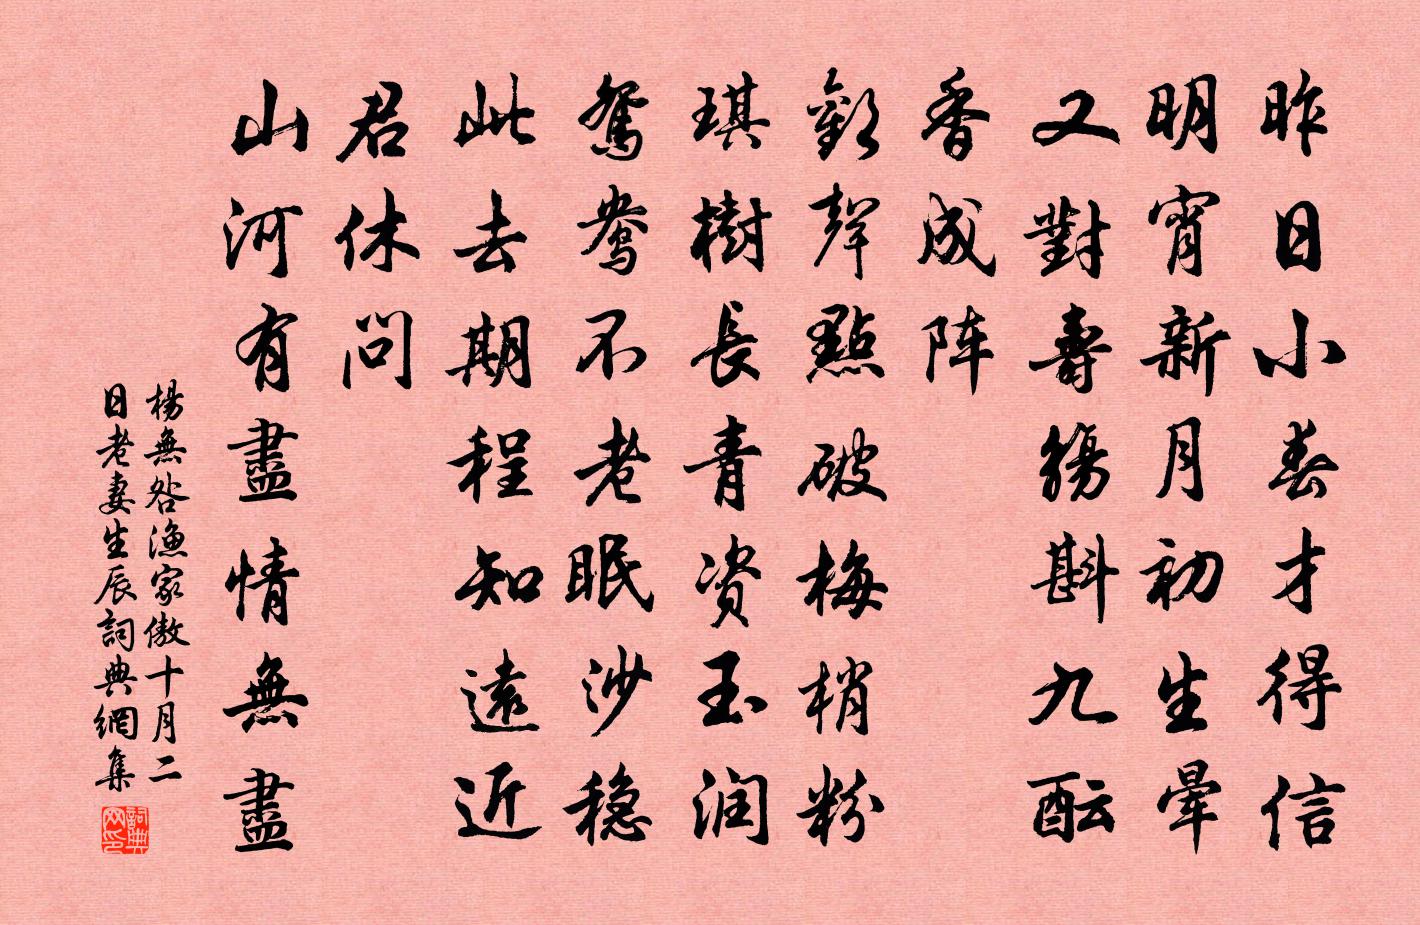 昨日小春才得信
明宵新月初生暈
又對壽觴斟九酝
香成阵
歡聲點破梅梢粉
琪樹長青资玉润
鸳鸯不老眠沙稳
此去期程知遠近
君休問
山河有盡情無盡
楊無咎渔家傲十月二
日老妻生辰詞典網集
詞典
网印